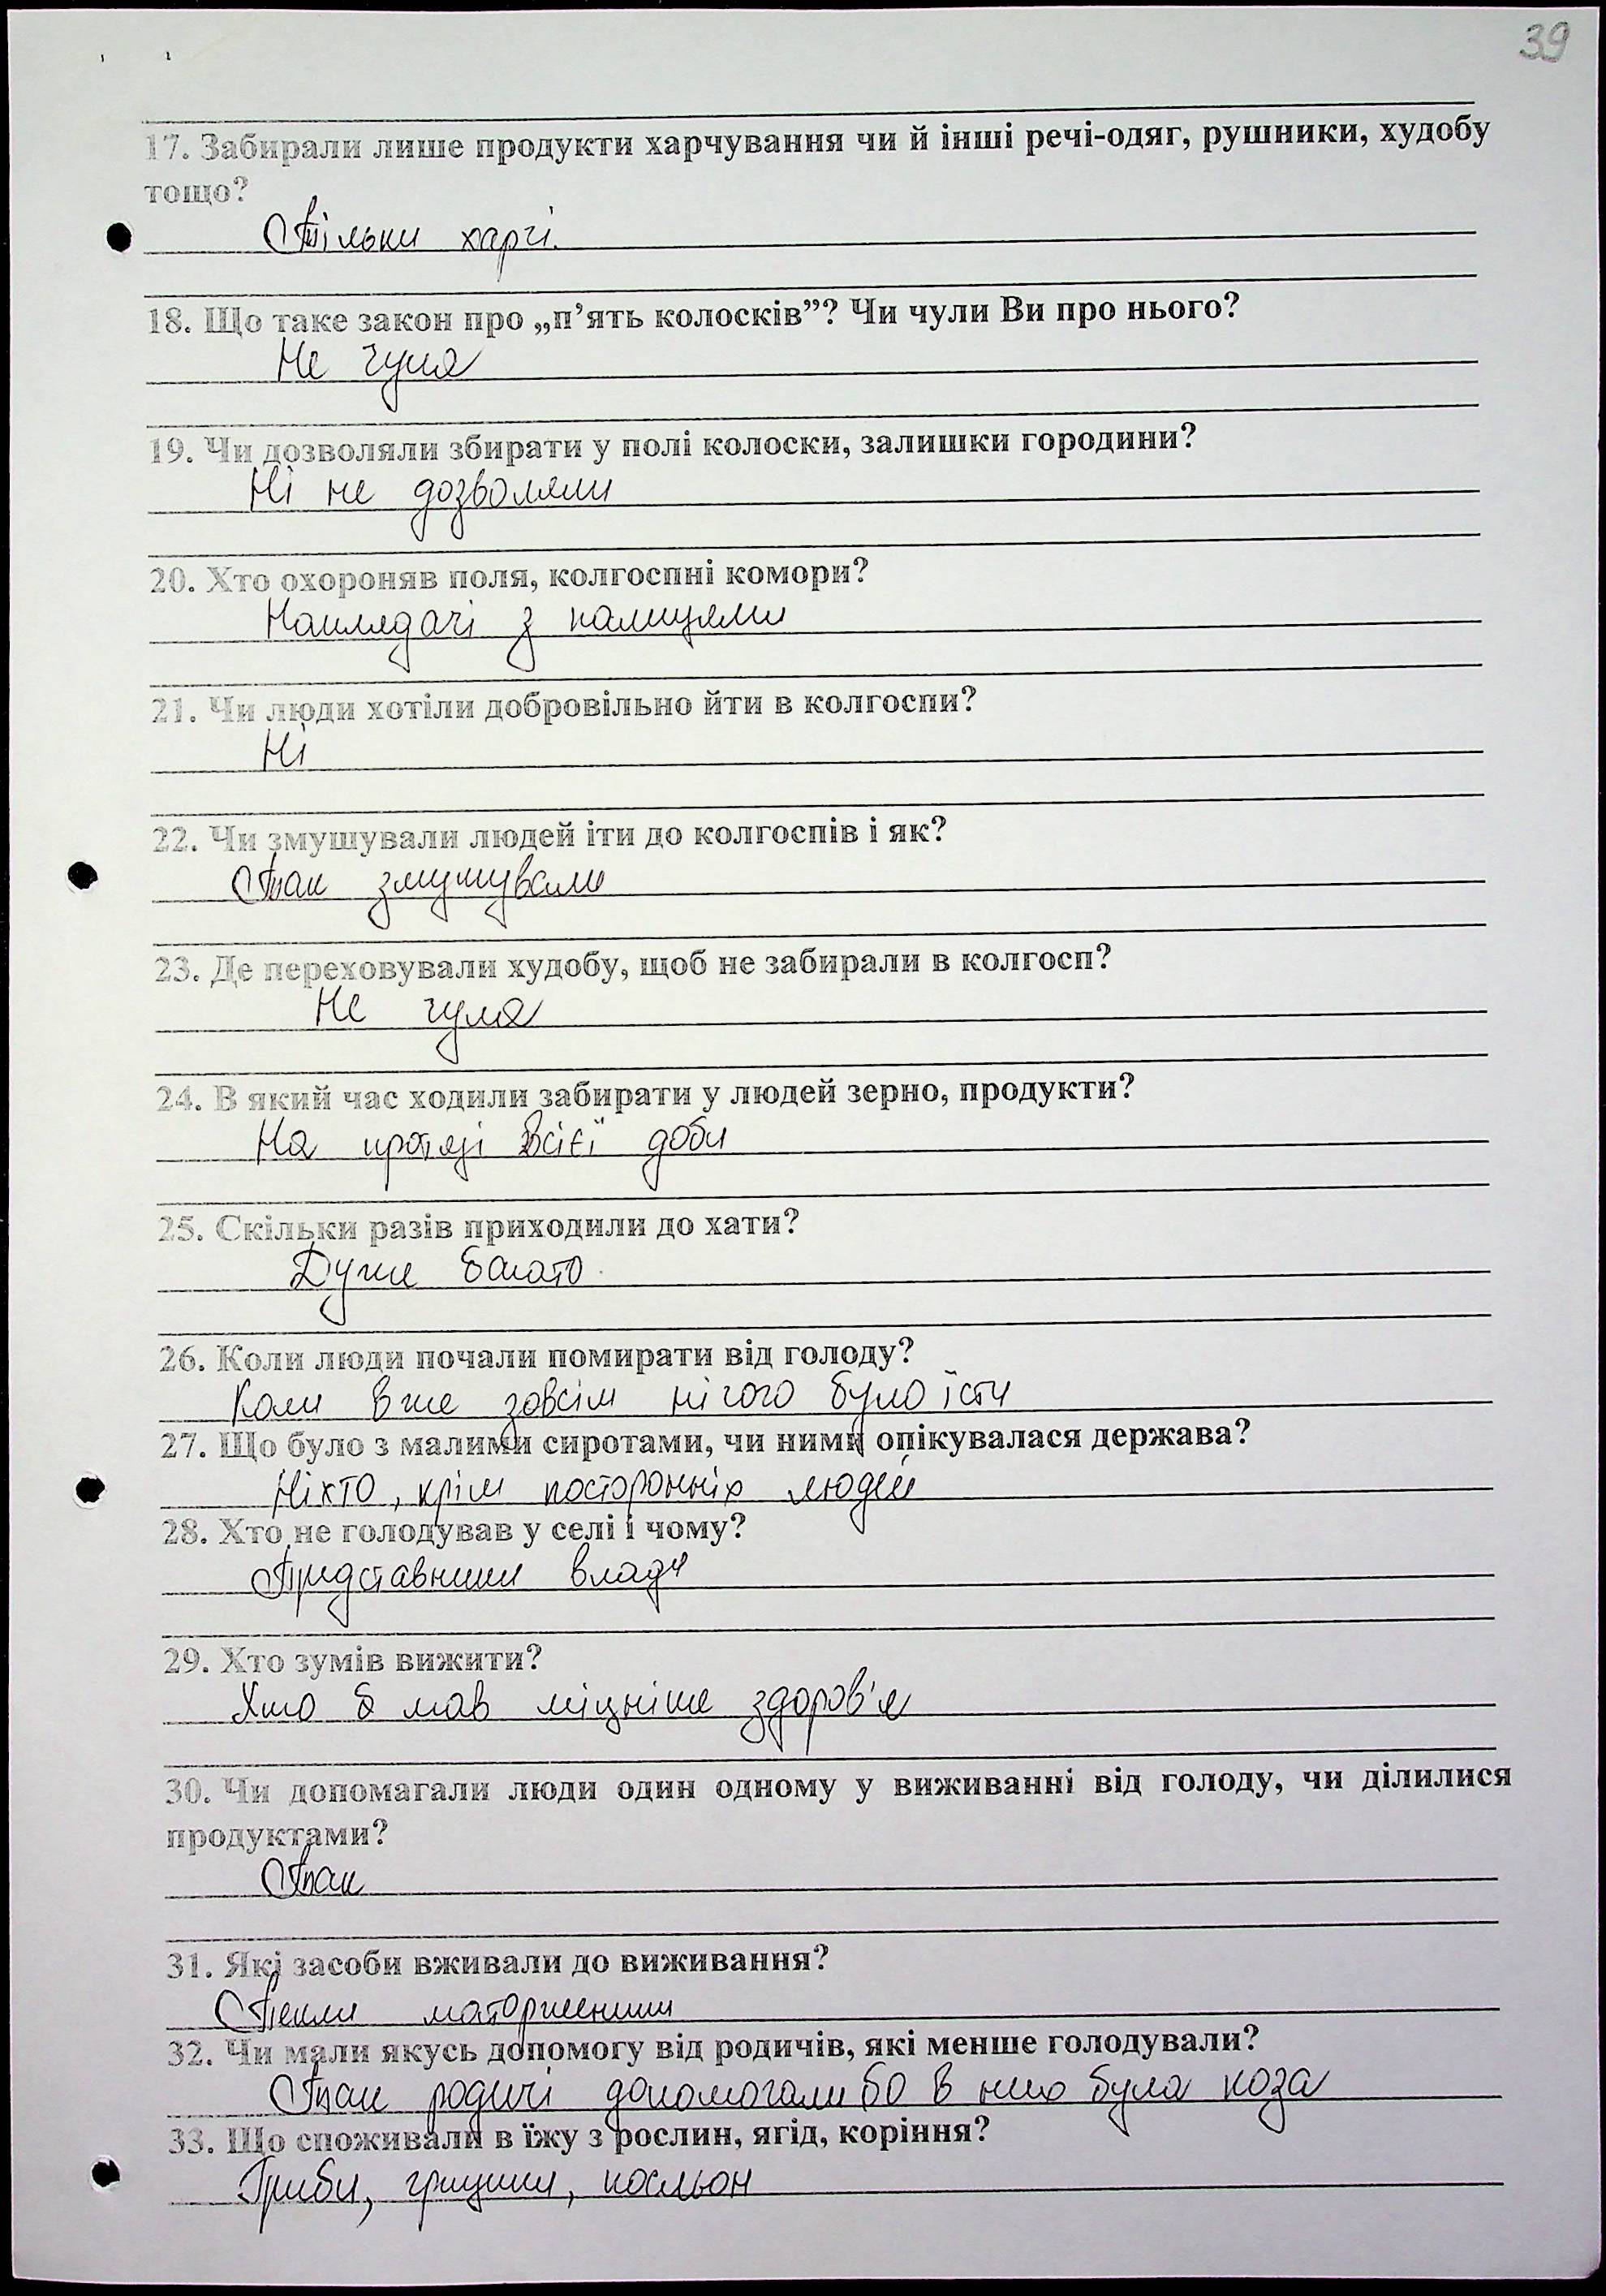 39
17. Забирали лише продукти харчування чи й інші речі-одяг, рушники, худобу
тощо?
Тільки харчі.
18. Що таке закон про „п’ять колосків”? Чи чули Ви про нього?
Не чула
19. Чи дозволяли збирати у полі колоски, залишки городини?
Ні не дозволяли
20. Хто охороняв поля, колгоспні комори?
Наглядачі з палицями
21. Чи люди хотіли добровільно йти в колгоспи?
Ні
22. Чи змушували людей іти до колгоспів і як?
Так змушували
23. Де переховували худобу, щоб не забирали в колгосп?
Не чула
24. В який час ходили забирати у людей зерно, продукти?
На протязі всієї доби
25. Скільки разів приходили до хати?
Дуже багато.
26. Коли люди почали помирати від голоду?
Коли вже зовсім нічого було їсти
27. Що було з малими сиротами, чи ними опікувалася держава?
Ніхто, крім посторонніх людей
28. Хто не голодував у селі і чому?
Представники влади
29. Хто зумів вижити?
Хто б мав міцніше здоров'я
30. Чи допомагали люди один одному у виживанні від голоду, чи ділилися
продуктами?
Так
31. Які засоби вживали до виживання?
Пекли маторженики
32. Чи мали якусь допомогу від родичів, які менше голодували?
Так родичі допомогали бо в них була коза
33. Що споживали в їжу з рослин, ягід, коріння?
Гриби, грицики, посльон